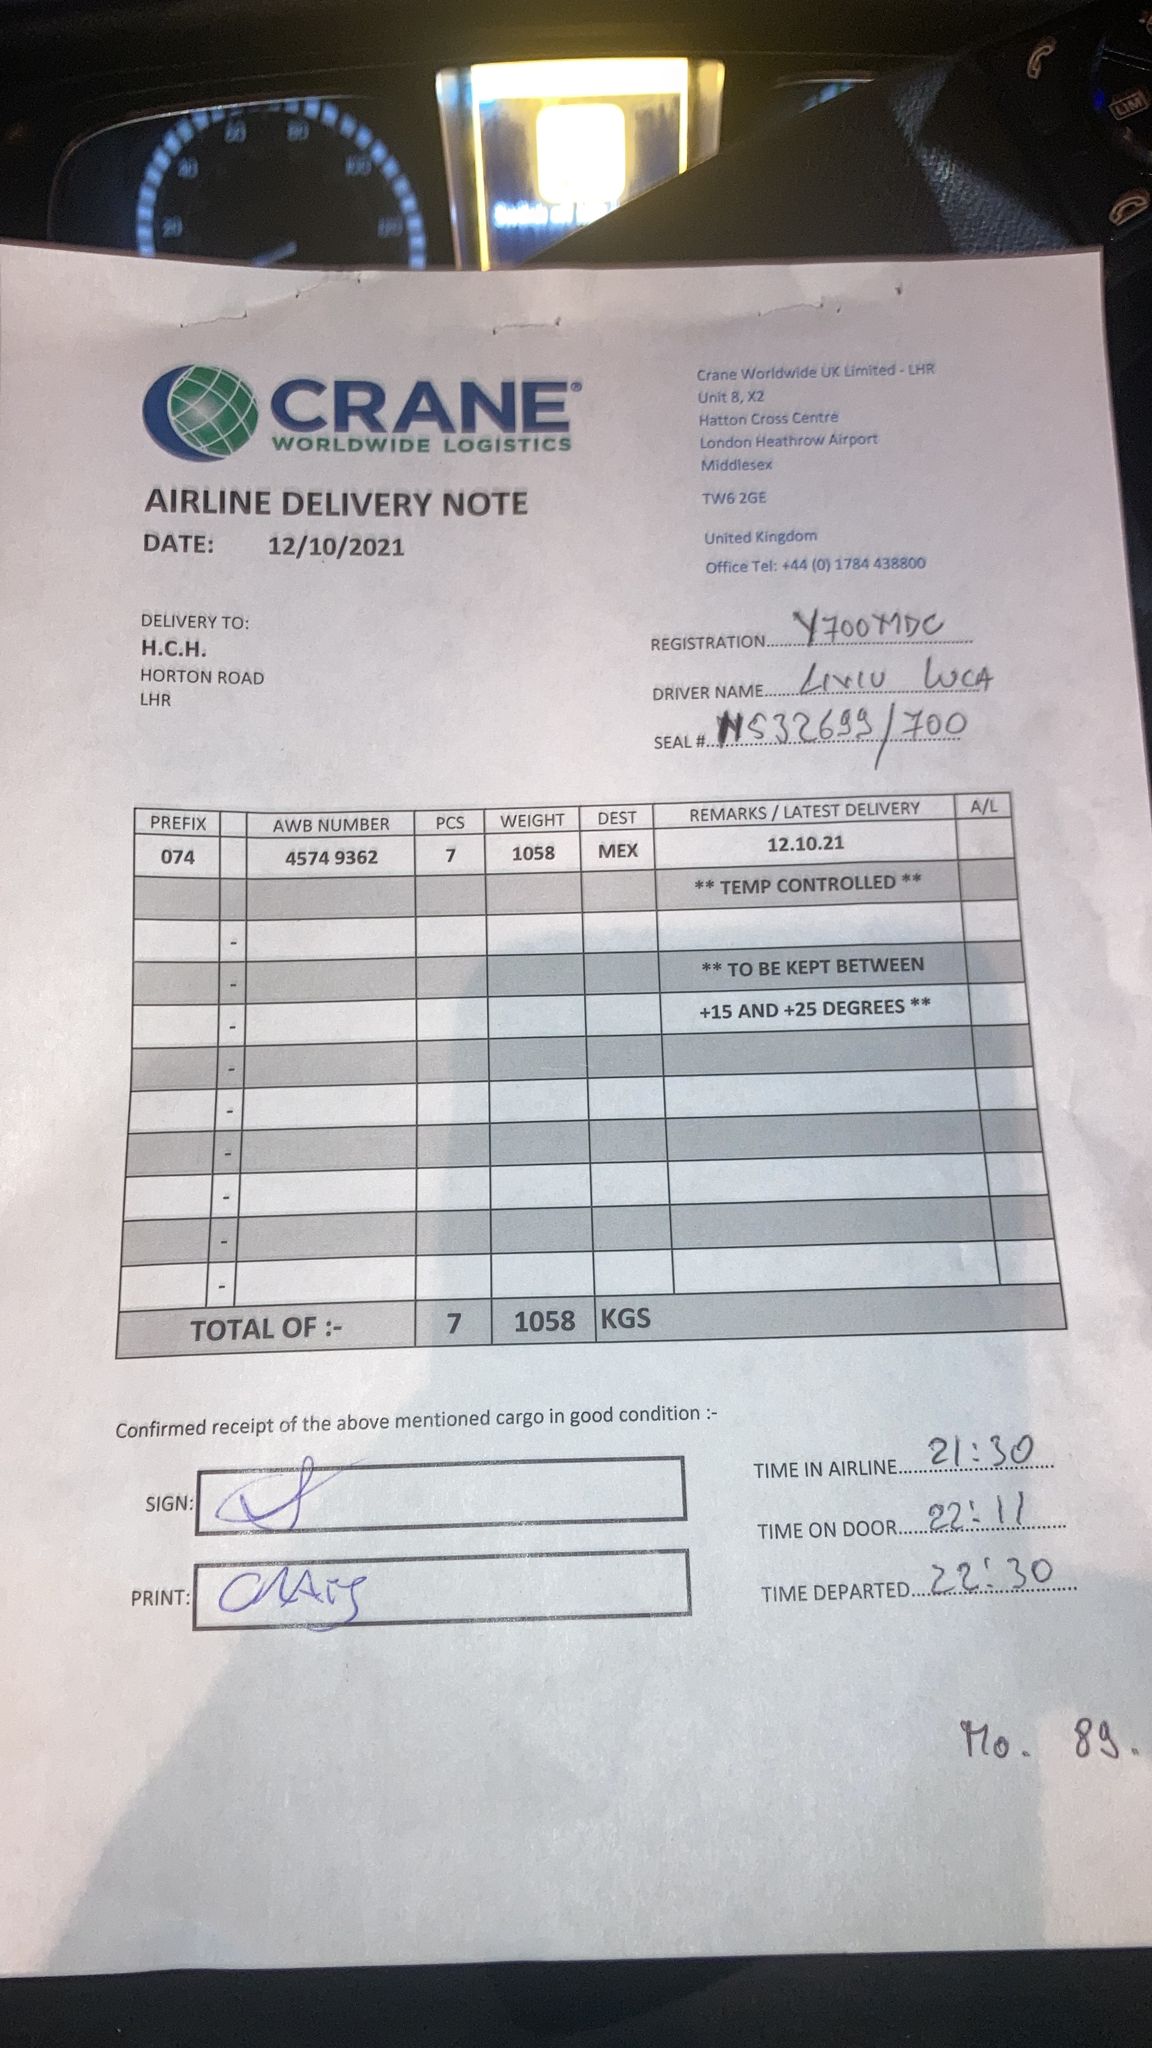 20 40 60 80 100 120
LIM
CRANE®
WORLDWIDE LOGISTICS
AIRLINE DELIVERY NOTE
DATE: 12/10/2021
Crane Worldwide UK Limited - LHR
Unit 8, X2
Hatton Cross Centre
London Heathrow Airport
Middlesex
TW6 2GE
United Kingdom
Office Tel: +44 (0) 1784 438800
DELIVERY TO:
H.C.H.
HORTON ROAD
LHR
REGISTRATION Y700MDC
DRIVER NAME LIVIU LUCA
SEAL # NS32699/700
PREFIX AWB NUMBER PCS WEIGHT DEST REMARKS / LATEST DELIVERY A/L
074 4574 9362 7 1058 MEX 12.10.21
** TEMP CONTROLLED **
-
- ** TO BE KEPT BETWEEN
- +15 AND +25 DEGREES **
-
-
-
-
-
-
TOTAL OF :- 7 1058 KGS
Confirmed receipt of the above mentioned cargo in good condition :-
SIGN:
PRINT: Craig
TIME IN AIRLINE 21:30
TIME ON DOOR 22:11
TIME DEPARTED 22:30
No. 89.